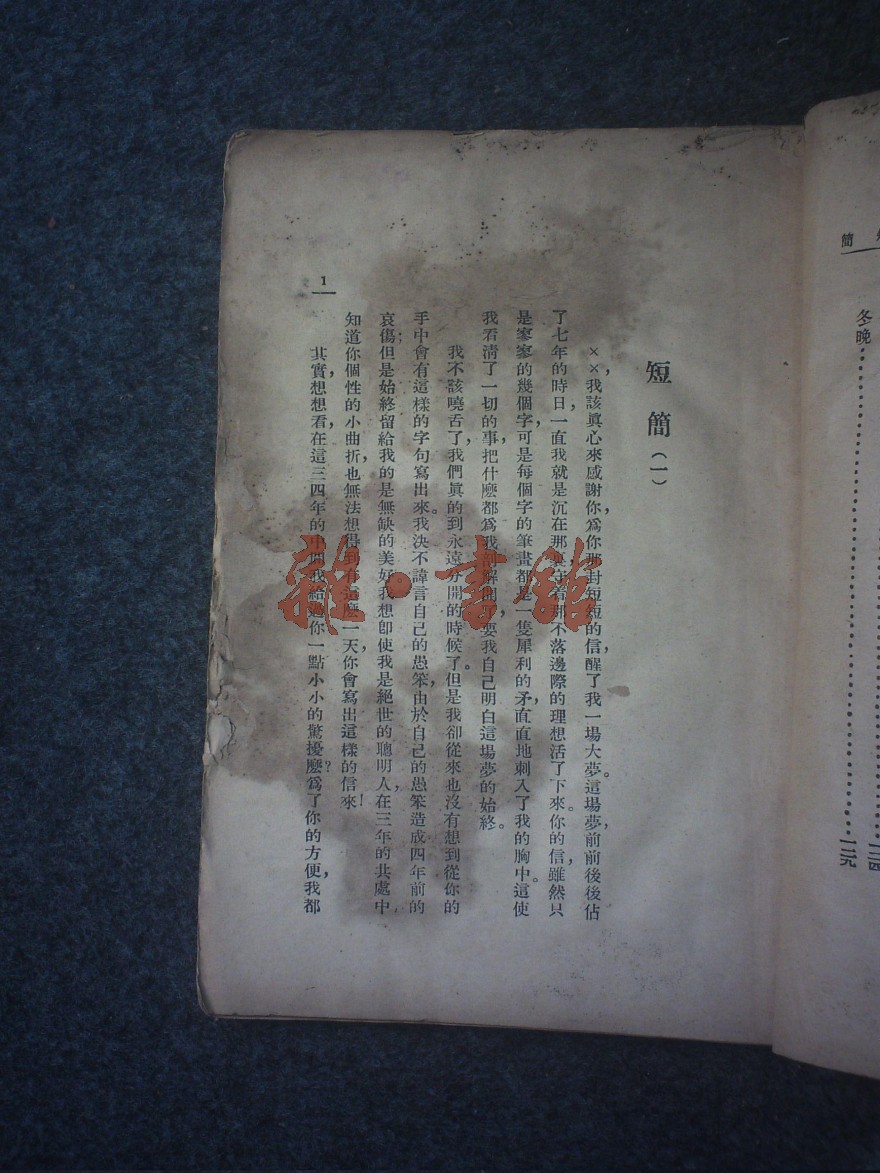 簡
冬晚
一二四
一二九
短簡（一）
××，我該眞心來感謝你，爲你那封短短的信，醒了我一場大夢。這場夢，前前後後佔
了七年的時日，一直我就是沉在那裏，守着那不落邊際的理想活了下來。你的信，雖然只
是寥寥的幾個字，可是每個字的筆畫都是一隻犀利的矛，直直地刺入了我的胸中。這使
我看清了一切的事，把什麽都爲我解開，要我自己明白這場夢的始終。
我不該曉舌了，我們眞的到永遠分開的時候了。但是我卻從來也沒有想到從你的
手中會有這樣的字句寫出來。我決不諱言自己的愚笨，由於自己的愚笨造成四年前的
哀傷；但是始終留給我的是無缺的美好。我想卽使我是絕世的聰明人，在三年的共處中
知道你個性的小曲折，也無法想得到有這麽一天，你會寫出這樣的信來！
其實，想想看，在這三四年的中間我給過你一點小小的驚擾麽？爲了你的方便，我都
1
雜·書館